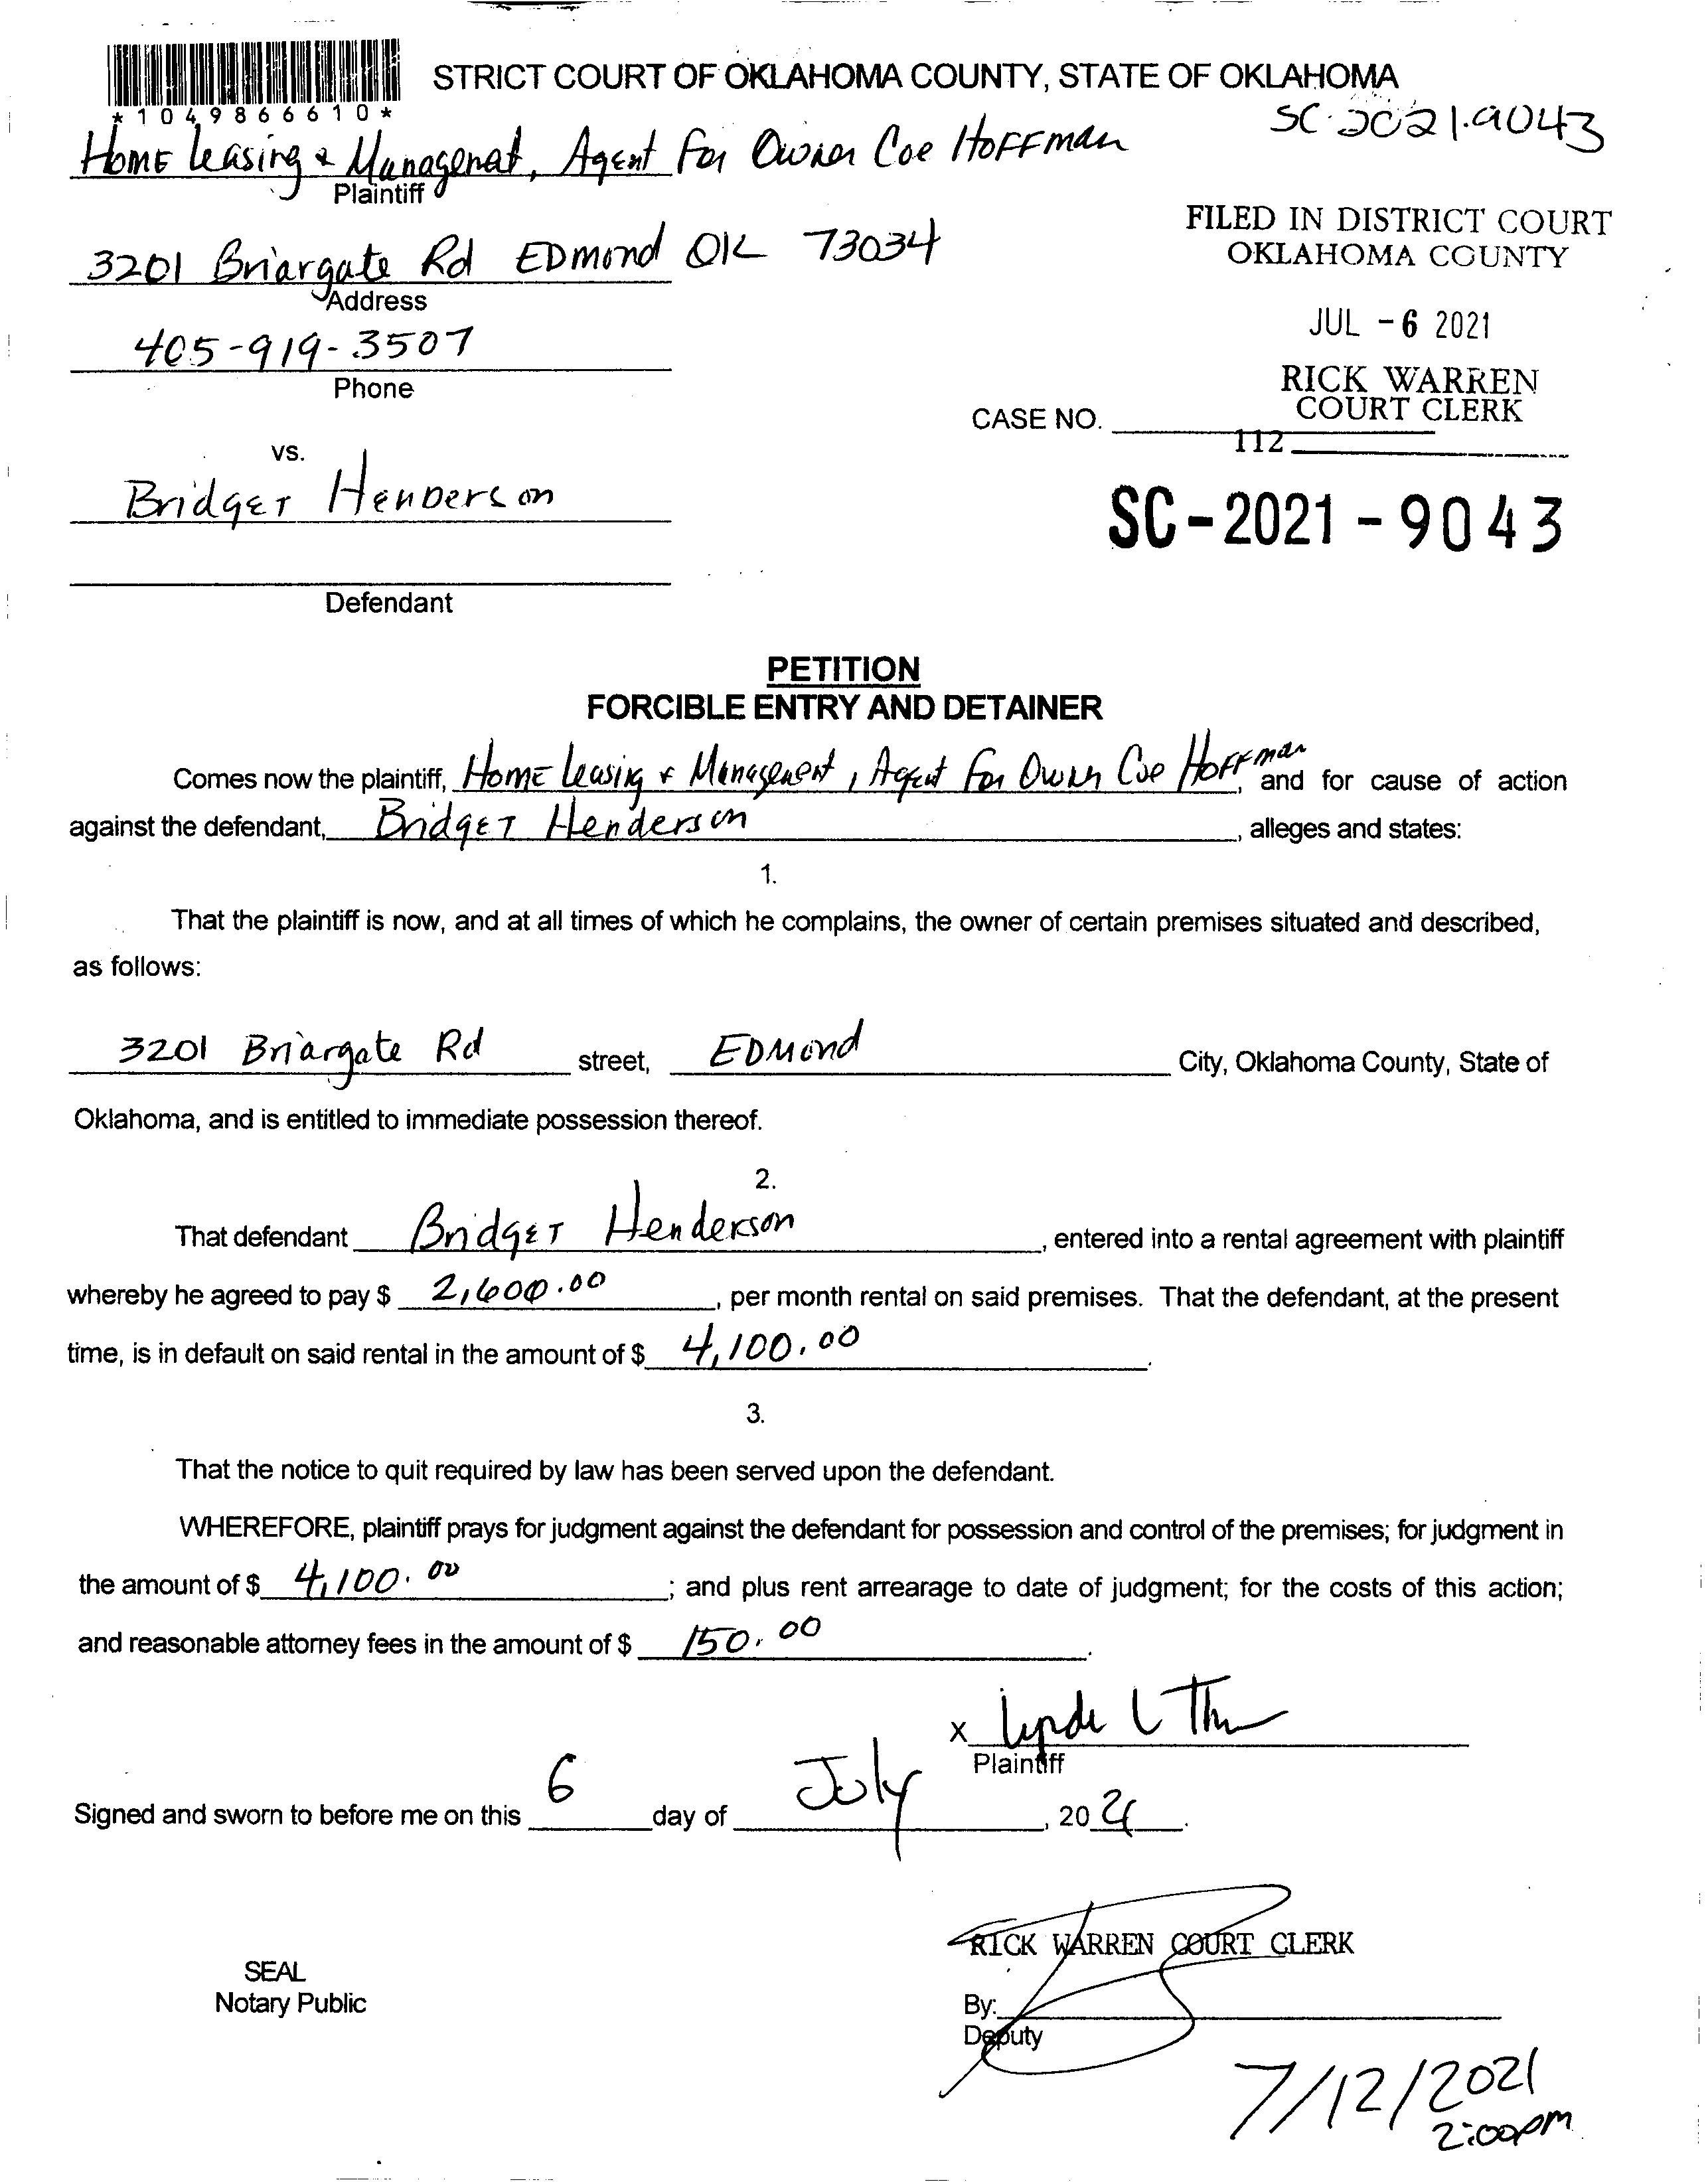 STRICT COURT OF OKLAHOMA COUNTY, STATE OF OKLAHOMA
*1049866610*
SC-2021-9043
Home Leasing & Managenat, Agent For Owner Coe Hoffman
Plaintiff
FILED IN DISTRICT COURT
OKLAHOMA COUNTY
3201 Briargate Rd Edmond OK 73034
Address
JUL - 6 2021
405-919-3507
Phone
RICK WARREN
COURT CLERK
CASE NO.
112
vs.
Bridget Henderson
SC-2021-9043
Defendant
PETITION
FORCIBLE ENTRY AND DETAINER
Comes now the plaintiff, Home Leasing & Management, Agent For Owner Coe Hoffman, and for cause of action
against the defendant, Bridget Henderson, alleges and states:
1.
That the plaintiff is now, and at all times of which he complains, the owner of certain premises situated and described,
as follows:
3201 Briargate Rd street, Edmond City, Oklahoma County, State of
Oklahoma, and is entitled to immediate possession thereof.
2.
That defendant Bridget Henderson, entered into a rental agreement with plaintiff
whereby he agreed to pay $ 2,600.00, per month rental on said premises. That the defendant, at the present
time, is in default on said rental in the amount of $ 4,100.00.
3.
That the notice to quit required by law has been served upon the defendant.
WHEREFORE, plaintiff prays for judgment against the defendant for possession and control of the premises; for judgment in
the amount of $ 4,100.00; and plus rent arrearage to date of judgment; for the costs of this action;
and reasonable attorney fees in the amount of $ 150.00.
X
Plaintiff
Signed and sworn to before me on this 6 day of July, 2021.
RICK WARREN COURT CLERK
SEAL
Notary Public
By:
Deputy
7/12/2021
2:00pm